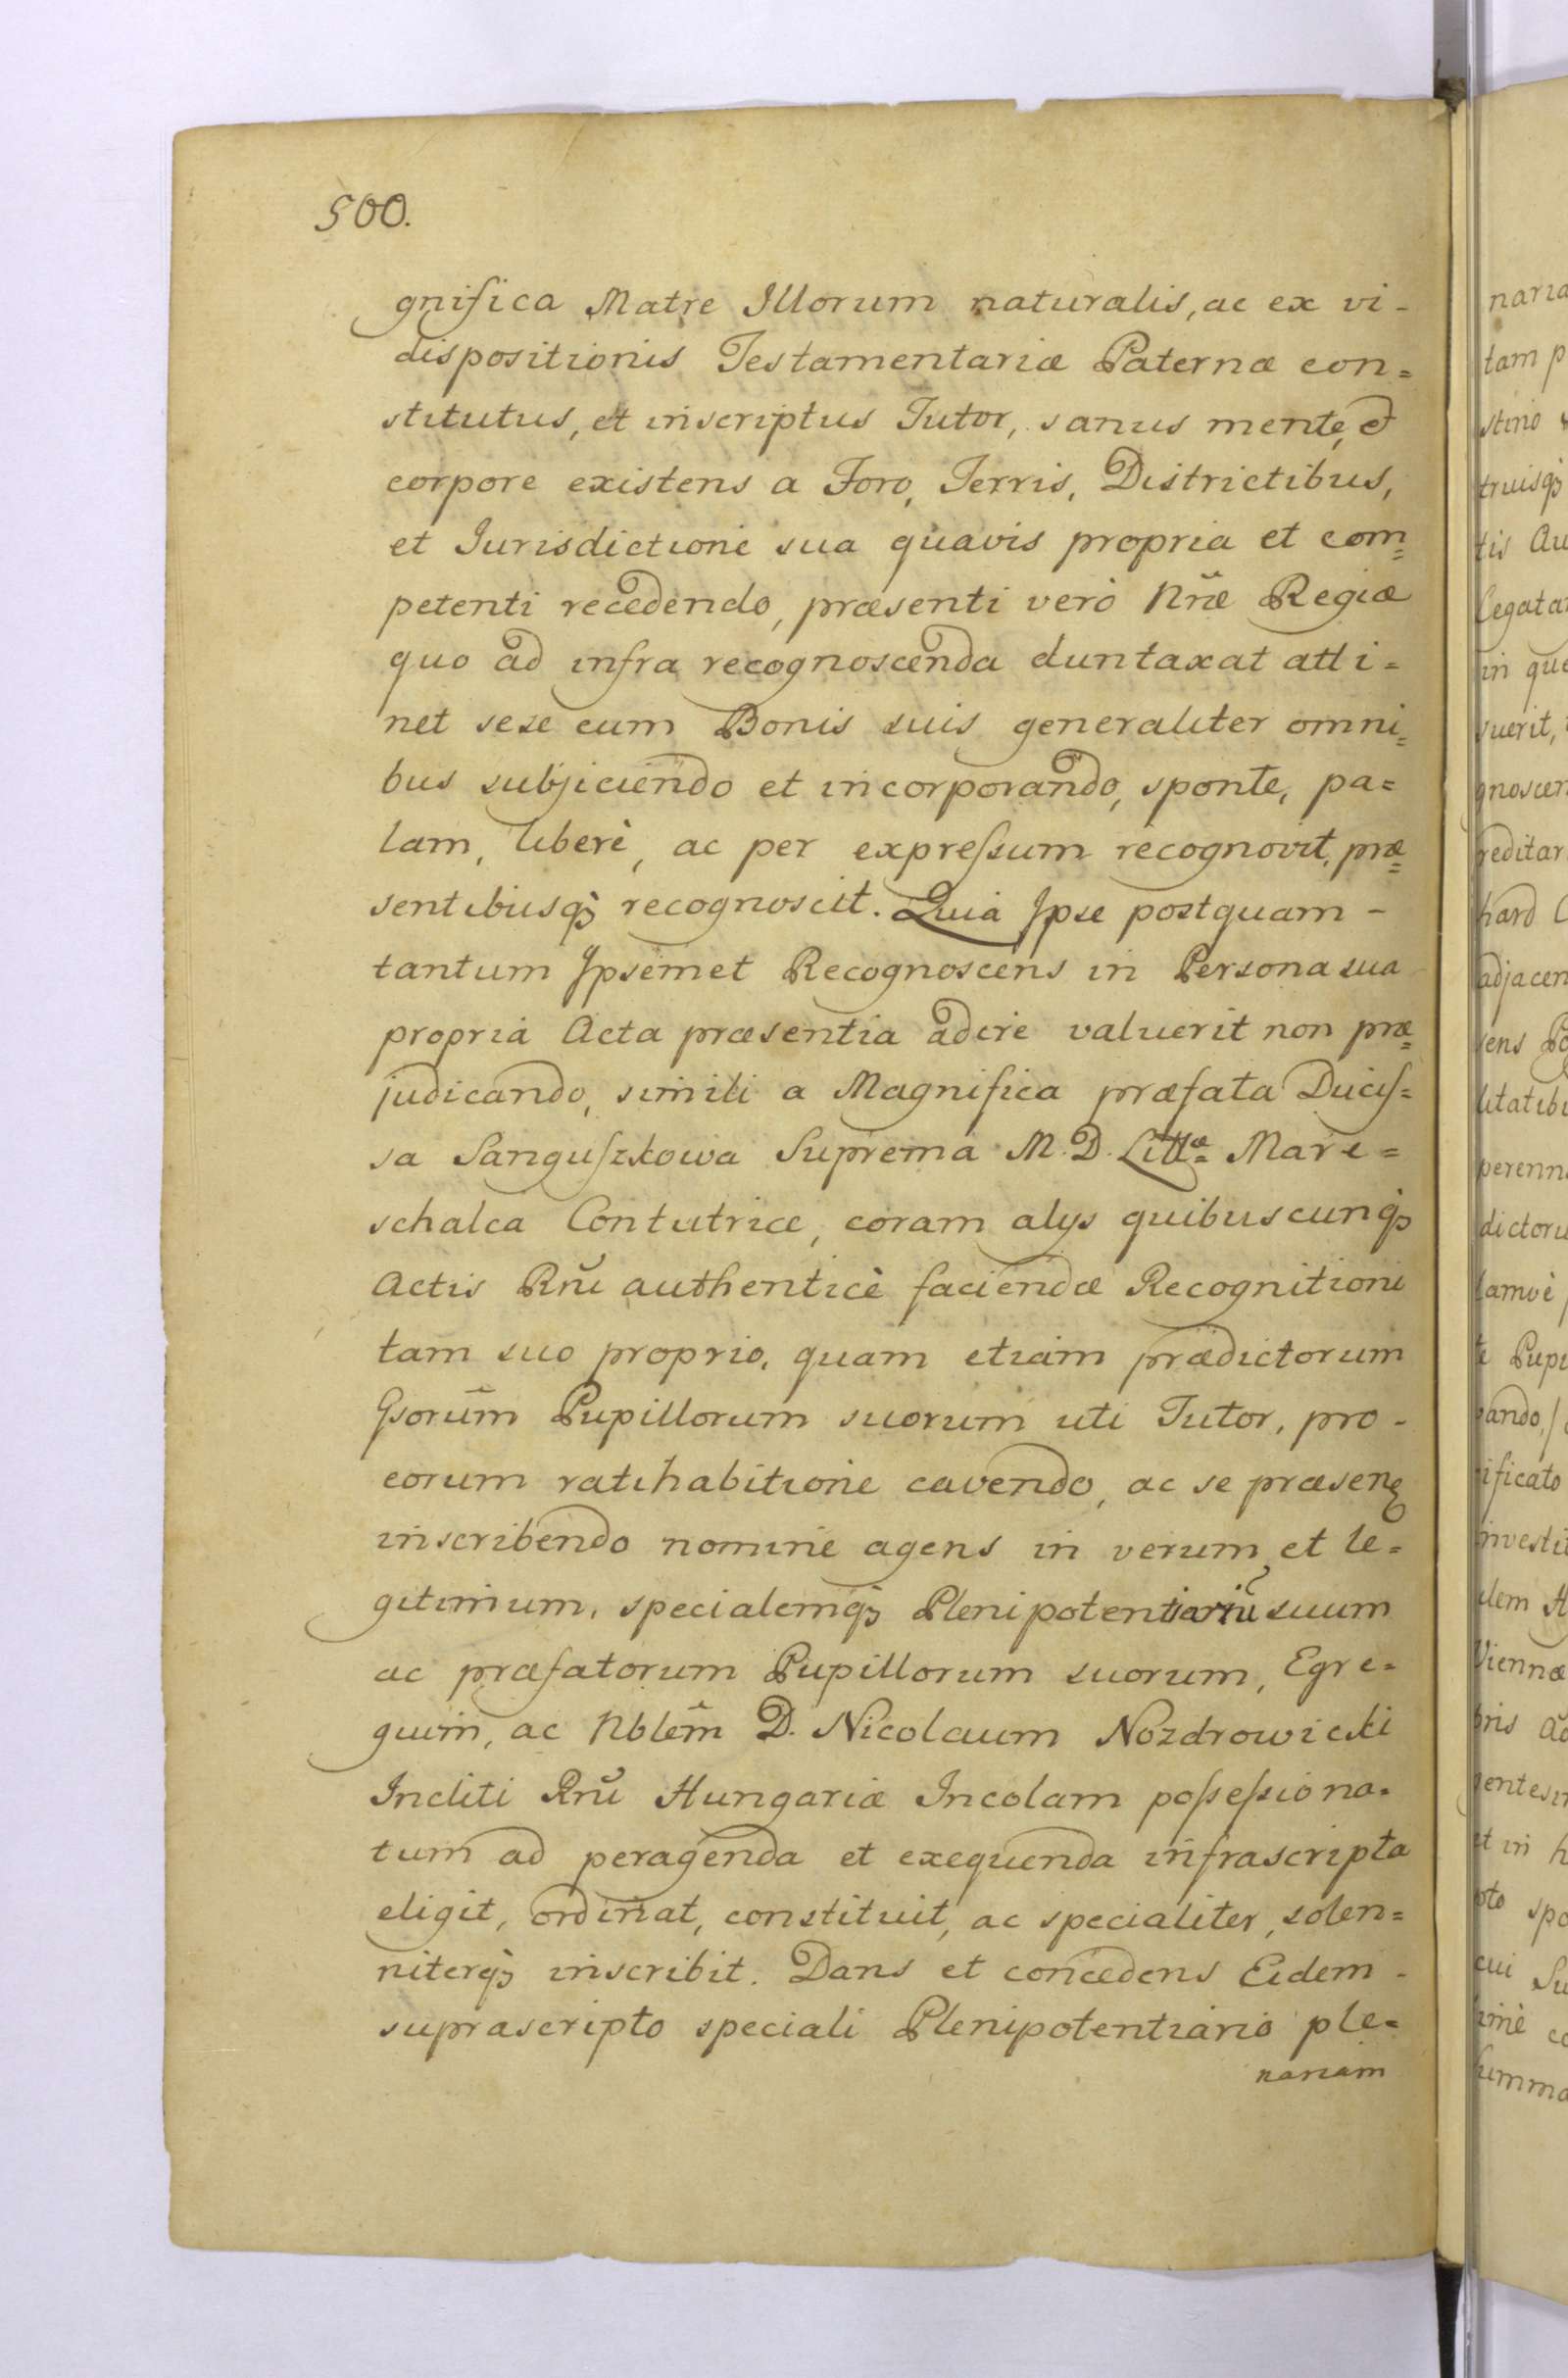 500.
gnifica Matre Illorum naturalis, ac ex vi-
dispositionis Testamentariæ Paternæ con=
stitutus, et inscriptus Tutor, sanus mente, et
corpore existens a Foro, Terris, Districtibus,
et Jurisdictione sua quavis propria et com=
petenti recedendo, præsenti verò Nrae Regiæ
quo ad infra recognoscenda duntaxat atti=
net sese cum Bonis suis generaliter omni=
bus subjiciendo et incorporando, sponte, pa=
lam, liberè, ac per expreſsum recognovit, præ=
sentibusq; recognoscit. Quia Ipse postquam-
tantum Ipsemet Recognoscens in Persona sua
propria Acta præsentia adire valuerit non præ=
judicando, simili a Magnifica præfata Duciſ=
sa Sanguſzkowa Suprema M. D. Littæ Mare=
schalca Contutrice, coram alys quibuscunq;
Actis Rnī authenticè faciendæ Recognitioni
tam suo proprio, quam etiam prædictorum
Gsorūm Pupillorum suorum uti Tutor, pro-
eorum ratihabitione cavendo, ac se præsen
inscribendo nomine agens in verum, et le=
gitimum, specialemq; Plenipotentiariū suum
ac præfatorum Pupillorum suorum, Egre=
gium, ac Nblēm D. Nicolaum Nozdrowicki
Incliti Rnī Hungariæ Incolam poſseſsiona=
tum ad peragenda et exequenda infrascripta
eligit, ordinat, constituit, ac specialiter, solen=
niterq; inscribit. Dans et concedens Eidem-
suprascripto speciali Plenipotentiario ple=
nariam